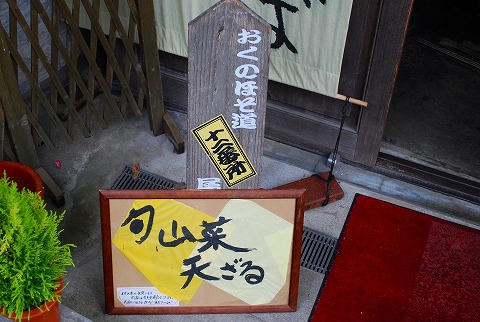 おくのほそ道
十二番所
旬山菜
天ざる